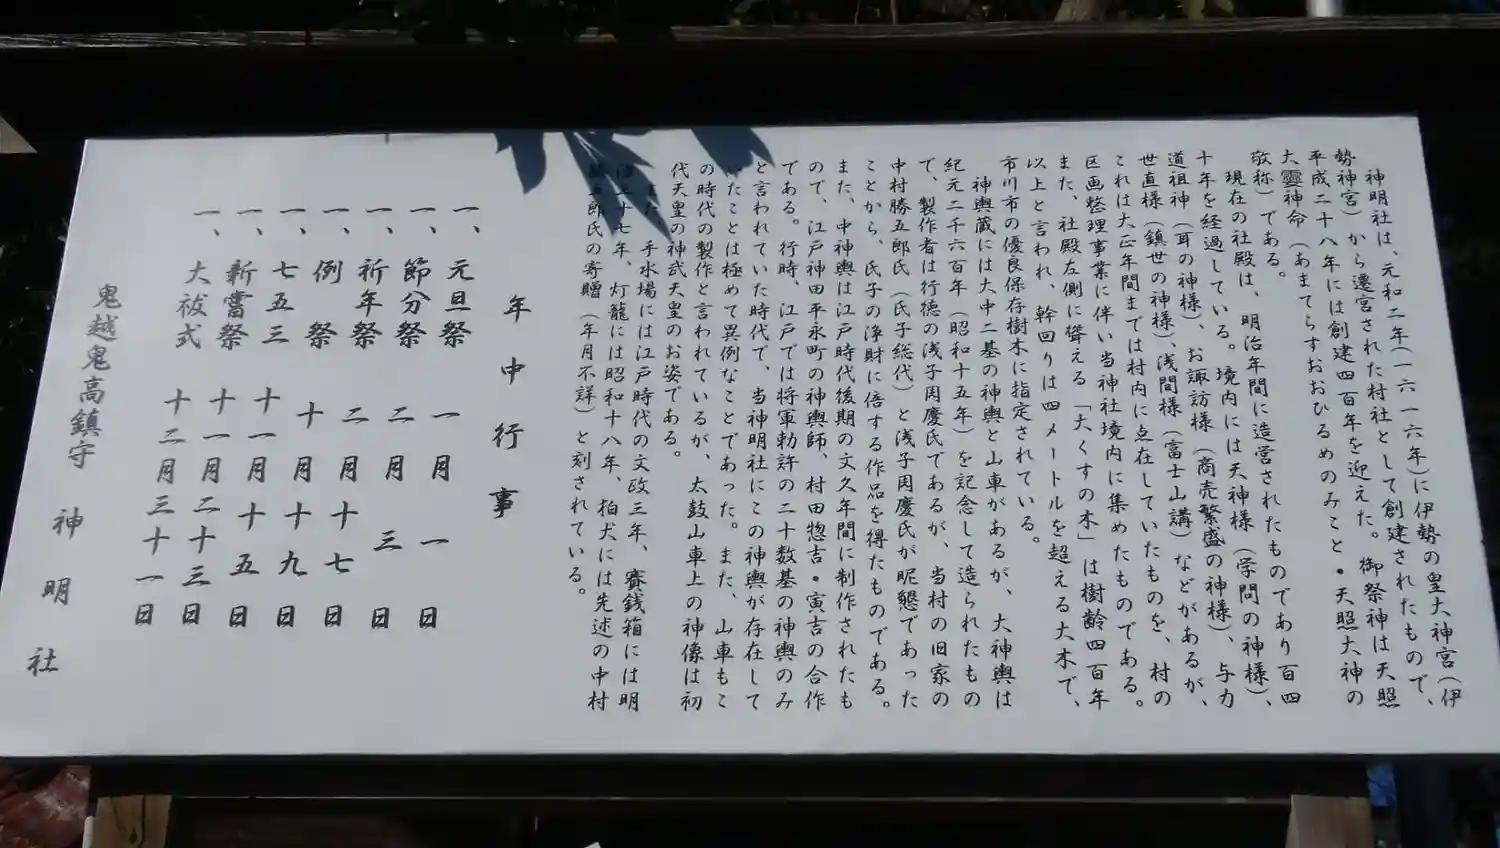 神明社は、元和二年(一六一六年)に伊勢の皇大神宮(伊
勢神宮)から遷宮された村社として創建されたもので、
平成二十八年には創建四百年を迎えた。御祭神は天照
大霊神命(あまてらすおおひるめのみこと・天照大神の
敬称)である。
現在の社殿は、明治年間に造営されたものであり百四
十年を経過している。境内には天神様(学問の神様)、
道祖神(耳の神様)、お諏訪様(商売繁盛の神様)、与力
世直様(鎮世の神様)、浅間様(富士山講)などがあるが、
これは大正年間までは村内に点在していたものを、村の
区画整理事業に伴い当神社境内に集めたものである。
また、社殿左側に聳える「大くすの木」は樹齢四百年
以上と言われ、幹回りは四メートルを超える大木で、
市川市の優良保存樹木に指定されている。
神輿蔵には大中二基の神輿と山車があるが、大神輿は
紀元二千六百年(昭和十五年)を記念して造られたもの
で、製作者は行徳の浅子周慶氏であるが、当村の旧家の
中村勝五郎氏(氏子総代)と浅子周慶氏が昵懇であった
ことから、氏子の浄財に倍する作品を得たものである。
また、中神輿は江戸時代後期の文久年間に制作されたも
ので、江戸神田平永町の神輿師、村田惣吉・寅吉の合作
である。行時、江戸では将軍勅許の二十数基の神輿のみ
と言われていた時代で、当神明社にこの神輿が存在して
いたことは極めて異例なことであった。また、山車もこ
の時代の製作と言われているが、太鼓山車上の神像は初
代天皇の神武天皇のお姿である。
また、手水場には江戸時代の文政三年、賽銭箱には明
治三十七年、灯籠には昭和十八年、狛犬には先述の中村
勝五郎氏の寄贈(年月不詳)と刻されている。
年中行事
一、元旦祭 一月一日
一、節分祭 二月三日
一、祈年祭 二月十七日
一、例祭 十月十九日
一、七五三 十一月十五日
一、新嘗祭 十一月二十三日
一、大祓式 十二月三十一日
鬼越鬼高鎮守 神明社